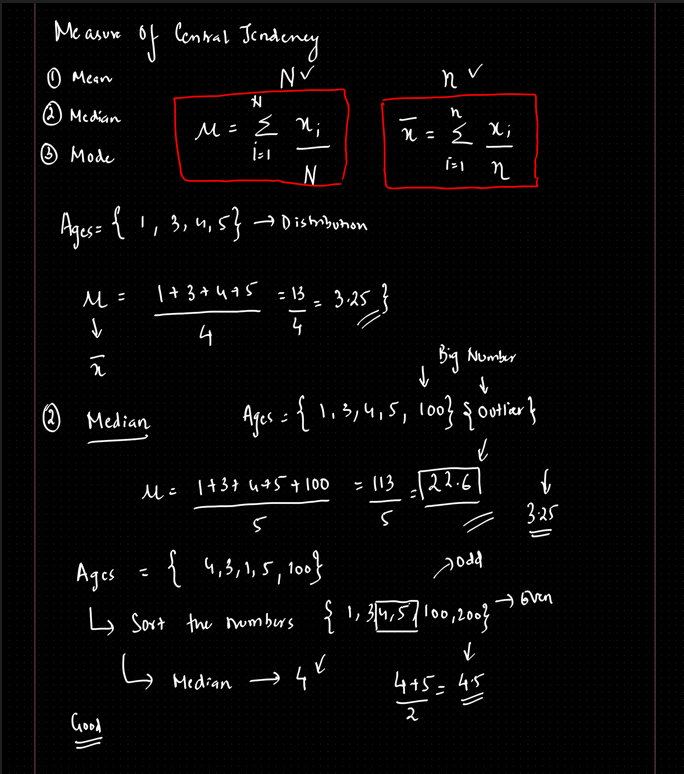 Measure of Central Tendency
① Mean N✓ n ✓
② Median μ = N Σ i=1 xi / N x̄ = n Σ i=1 xi / n
③ Mode
Ages = { 1, 3, 4, 5} → Distribution
μ = 1+3+4+5 / 4 = 13 / 4 = 3.25 }
↓
x̄
Big Number
↓ ↓
② Median Ages = { 1, 3, 4, 5, 100} {Outlier}
μ = 1+3+4+5+100 / 5 = 113 / 5 = 22.6 ↓ 3.25
Ages = { 4, 3, 1, 5, 100} → Odd
↳ Sort the numbers { 1, 3, 4, 5, 100, 200} → Even
↳ Median → 4 ✓ 4+5 / 2 = 4.5
Good